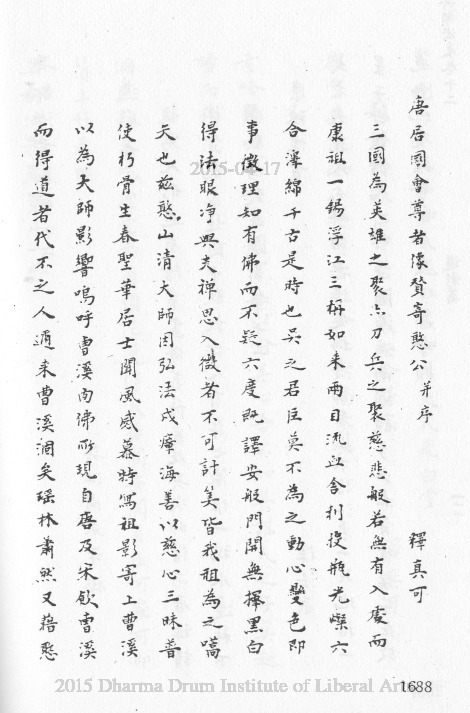 唐居國會尊者像贊寄憨公 并序 釋真可
三國為英雄之聚亦刀兵之聚慈悲般若無有入處而
康祖一錫浮江三稱如來兩目流血舍利投瓶光爍六
合澤綿千古是時也吳之君臣莫不為之動心變色即
事微理知有佛而不疑六度既譯安般門開無擇黑白
得法眼淨與夫禪思入微者不可計筭皆我祖為之嚆
天也茲憨山清大師因弘法戍瘴海善以慈心三昧普
使朽骨生春聖華居士聞風感慕特寫祖影寄上曹溪
以為大師影響嗚呼曹溪南佛所現自唐及宋飲曹溪
而得道者代不乏人邇來曹溪涸矣瑶林肅然又藉憨
1688
2015-04-17
2015 Dharma Drum Institute of Liberal Arts